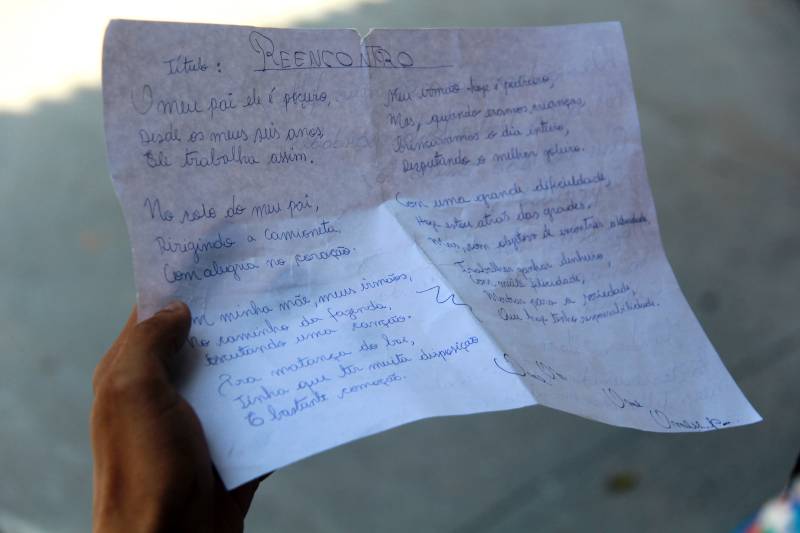 Título: REENCONTRO
O meu pai ele é
Desde os meus seis anos,
Ele trabalha assim.
No colo do meu pai,
Dirigindo a camioneta,
Com alegria no coração.
minha mãe, meus irmãos,
No caminho da fazenda,
Escutando uma canção.
Era matança do boi,
Tinha que ter muita disposição
E bastante comoção.
Meu irmão hoje é pedreiro,
Mas, quando eramos crianças,
Brincavamos o dia inteiro,
Disputando o melhor
Com uma grande dificuldade,
Hoje estou atrás das grades,
Mas, com objetivo de encontrar a liberdade
Trabalhar, ganhar dinheiro,
Com muita
Mostrar para a sociedade,
Que hoje tenho responsabilidade.